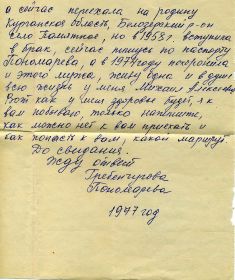 а сейчас переехала на родину
Курганская область, Белозерский р-он
село Памятное, но в 1958 г. вступила
в брак, сейчас пишусь по паспорту
Пономарева, а в 1974 году похоронила
и этого мужа, живу одна и в душе
всю жизнь у меня Михаил Алексеевич
Вот как у меня здоровье будет, я к
вам побываю, только напишите,
как можно нет к вам приехать и
как попасть к вам, какой маршрут
До свидания.
Жду ответ
Гребенчирова
Пономарева
1977 год